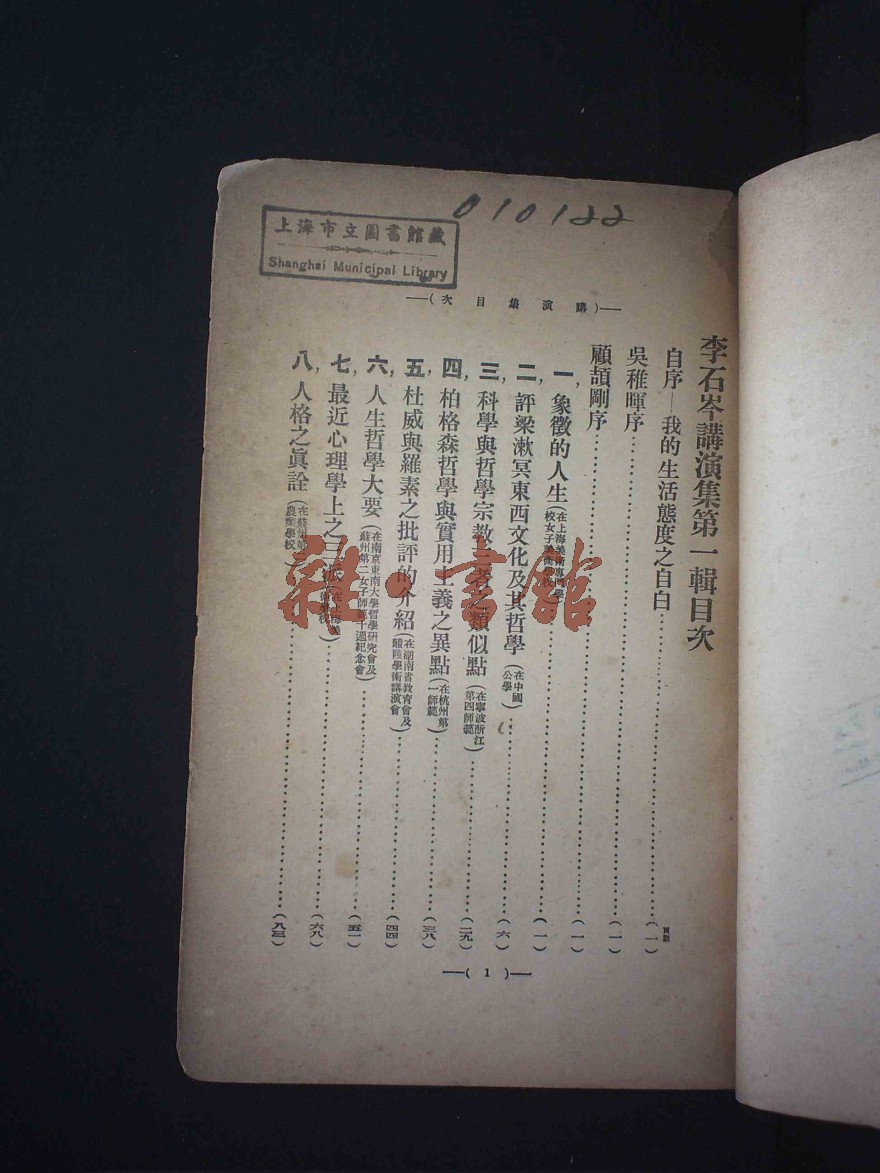 010122
上海市立圖書館藏
Shanghai Municipal Library
(講演集目次)
李石岑講演集第一輯目次
頁數
自序—我的生活態度之自白……(一)
吳稚暉序……(一)
顧頡剛序……(一)
一,象徵的人生(在上海美術專門學校女子美術學校)……(一)
二,評梁漱冥東西文化及其哲學(在中國公學)……(六)
三,科學與哲學宗教三者之類似點(在寧波浙江第四師範)……(二九)
四,柏格森哲學與實用主義之異點(在杭州第一師範)……(三八)
五,杜威與羅素之批評的介紹(在湖南省教育會及醴陵學術講演會)……(四四)
六,人生哲學大要(在南京東南大學哲學研究會及蘇州第二女子師範十週紀念會)……(五一)
七,最近心理學上之三派(在上海美術學校)……(六八)
八,人格之眞詮(在蘇州第二農業學校)……(八三)
(1)
雜·書館